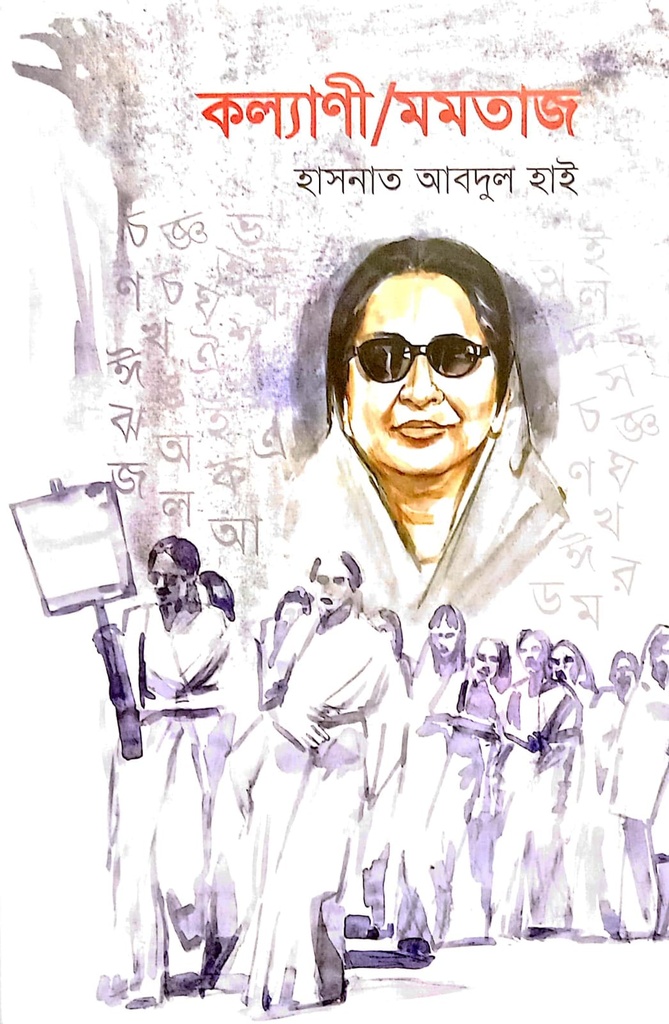 কল্যাণী/মমতাজ
হাসনাত আবদুল হাই
চ জ্ঞ ভ
ণ চ ঘ
খ ঐ
ঈ
ঝ হ
অ এ
জ ক
ল আ
স
চ জ্ঞ
ণ ঘ
খ
ঈ র
ড ম